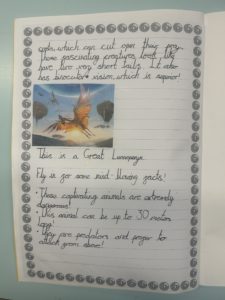 which can cut open their prey.
These fascinating creatures,
have two very short tails. It also
has binocular vision, which is superior!
This is a Great
Fly to get some mind-blowing facts!
• These captivating animals are extremely
dangerous!
• This animal can be up to 30 metres
long!
• They are predators and prefer to
attack from above!